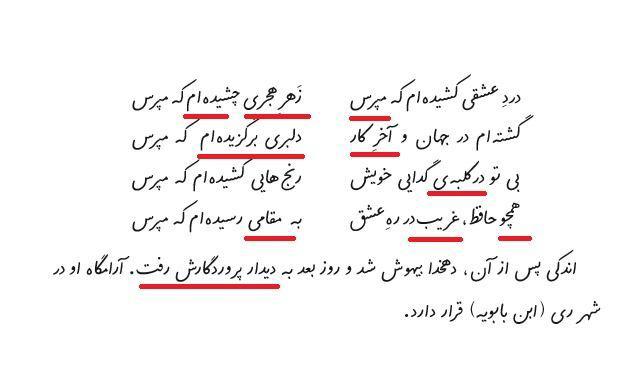 دردِ عشقی کشیده‌ام که مپرس زَهرِ هجری چشیده‌ام که مپرس
گشته‌ام در جهان و آخرِ کار دلبری برگزیده‌ام که مپرس
بی تو در کلبه‌ی گدایی خویش رنج‌هایی کشیده‌ام که مپرس
همچو حافظ، غریب در رهِ عشق به مقامی رسیده‌ام که مپرس
اندکی پس از آن، دهخدا بیهوش شد و روز بعد به دیدار پروردگارش رفت. آرامگاه او در
شهر ری (ابن بابویه) قرار دارد.